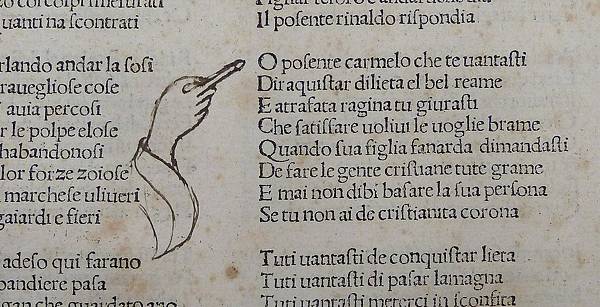 uanti na ſcontrati
rlando andar la ſoſi
rauegliose coſe
auia percoſi
r le polpe eloſe
habandonoſi
lor forze zoioſe
marcheſe uliueri
gaiardi e fieri
adeſo qui farano
bandiere paſa
Il poſente rinaldo riſpondia
O poſente carmelo che te uantaſti
Diraquiſtar dilieta el bel reame
E atrafata ragina tu giuraſti
Che ſatiſfare uoliui le uoglie brame
Quando ſua figlia fanarda dimandaſti
De fare le gente criſtiane tute grame
E mai non dibi baſare la ſua perſona
Se tu non ai de criſtianita corona
Tuti uantaſti de conquiſtar lieta
Tuti uantaſti di paſar lamagna
Tuti uantaſti meterci in ſconfita